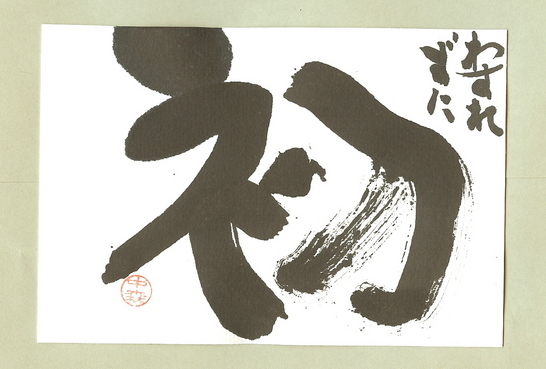 わすれ
ずに
初